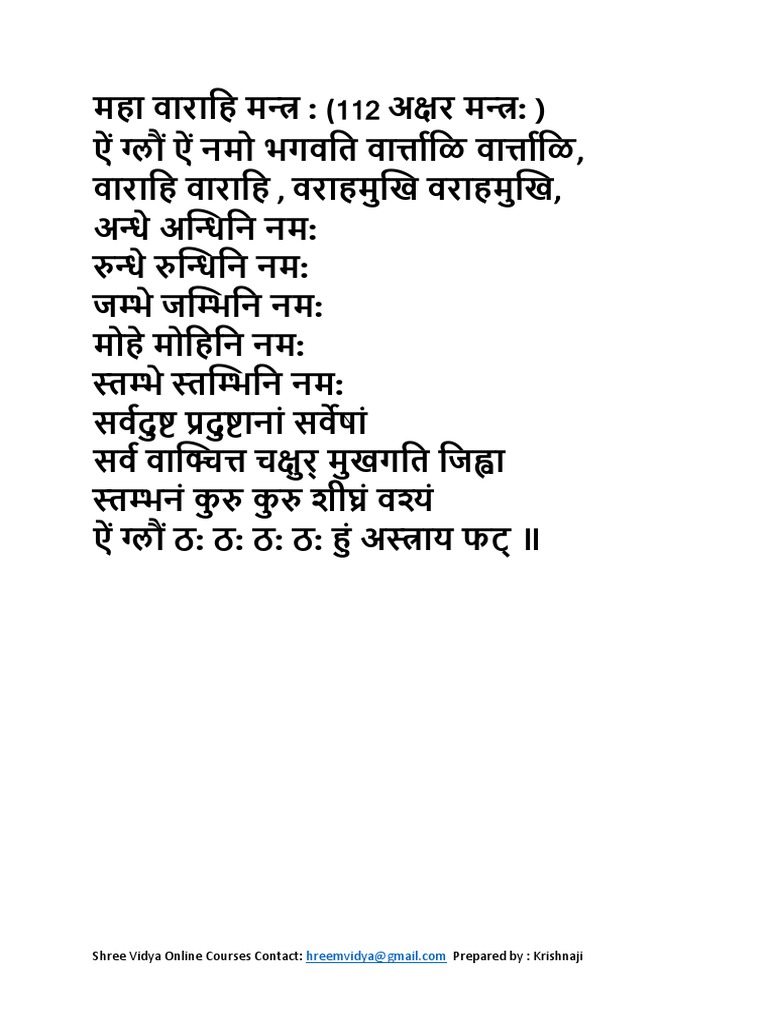 महा वाराहि मन्त्र : (112 अक्षर मन्त्र: )
ऐं ग्लौं ऐं नमो भगवति वार्त्ताळि वार्त्ताळि,
वाराहि वाराहि , वराहमुखि वराहमुखि,
अन्धे अन्धिनि नम:
रुन्धे रुन्धिनि नम:
जम्भे जम्भिनि नम:
मोहे मोहिनि नम:
स्तम्भे स्तम्भिनि नम:
सर्वदुष्ट प्रदुष्टानां सर्वेषां
सर्व वाक्चित्त चक्षुर् मुखगति जिह्वा
स्तम्भनं कुरु कुरु शीघ्रं वश्यं
ऐं ग्लौं ठ: ठ: ठ: ठ: हुं अस्त्राय फट् ॥
Shree Vidya Online Courses Contact: hreemvidya@gmail.com Prepared by : Krishnaji